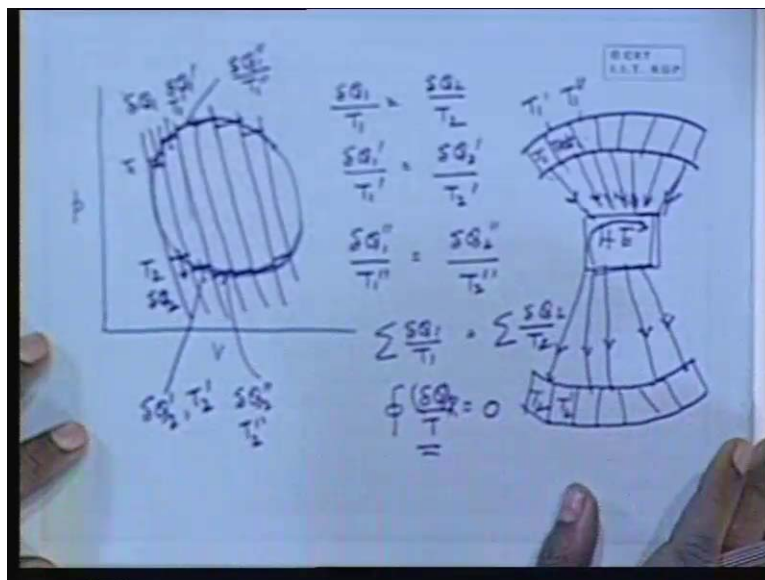 © CET
I.I.T. KGP
δQ₁ δQ₁' δQ₁''
T₁' T₁''
p
T₁
T₂
δQ₂
V
δQ₂', T₂' δQ₂''
T₂''
δQ₁/T₁ = δQ₂/T₂
δQ₁'/T₁' = δQ₂'/T₂'
δQ₁''/T₁'' = δQ₂''/T₂''
∑ δQ₁/T₁ = ∑ δQ₂/T₂
∮ (δQ)/T = 0
T₁' T₁''
T₁
H.E
T₂ T₂'